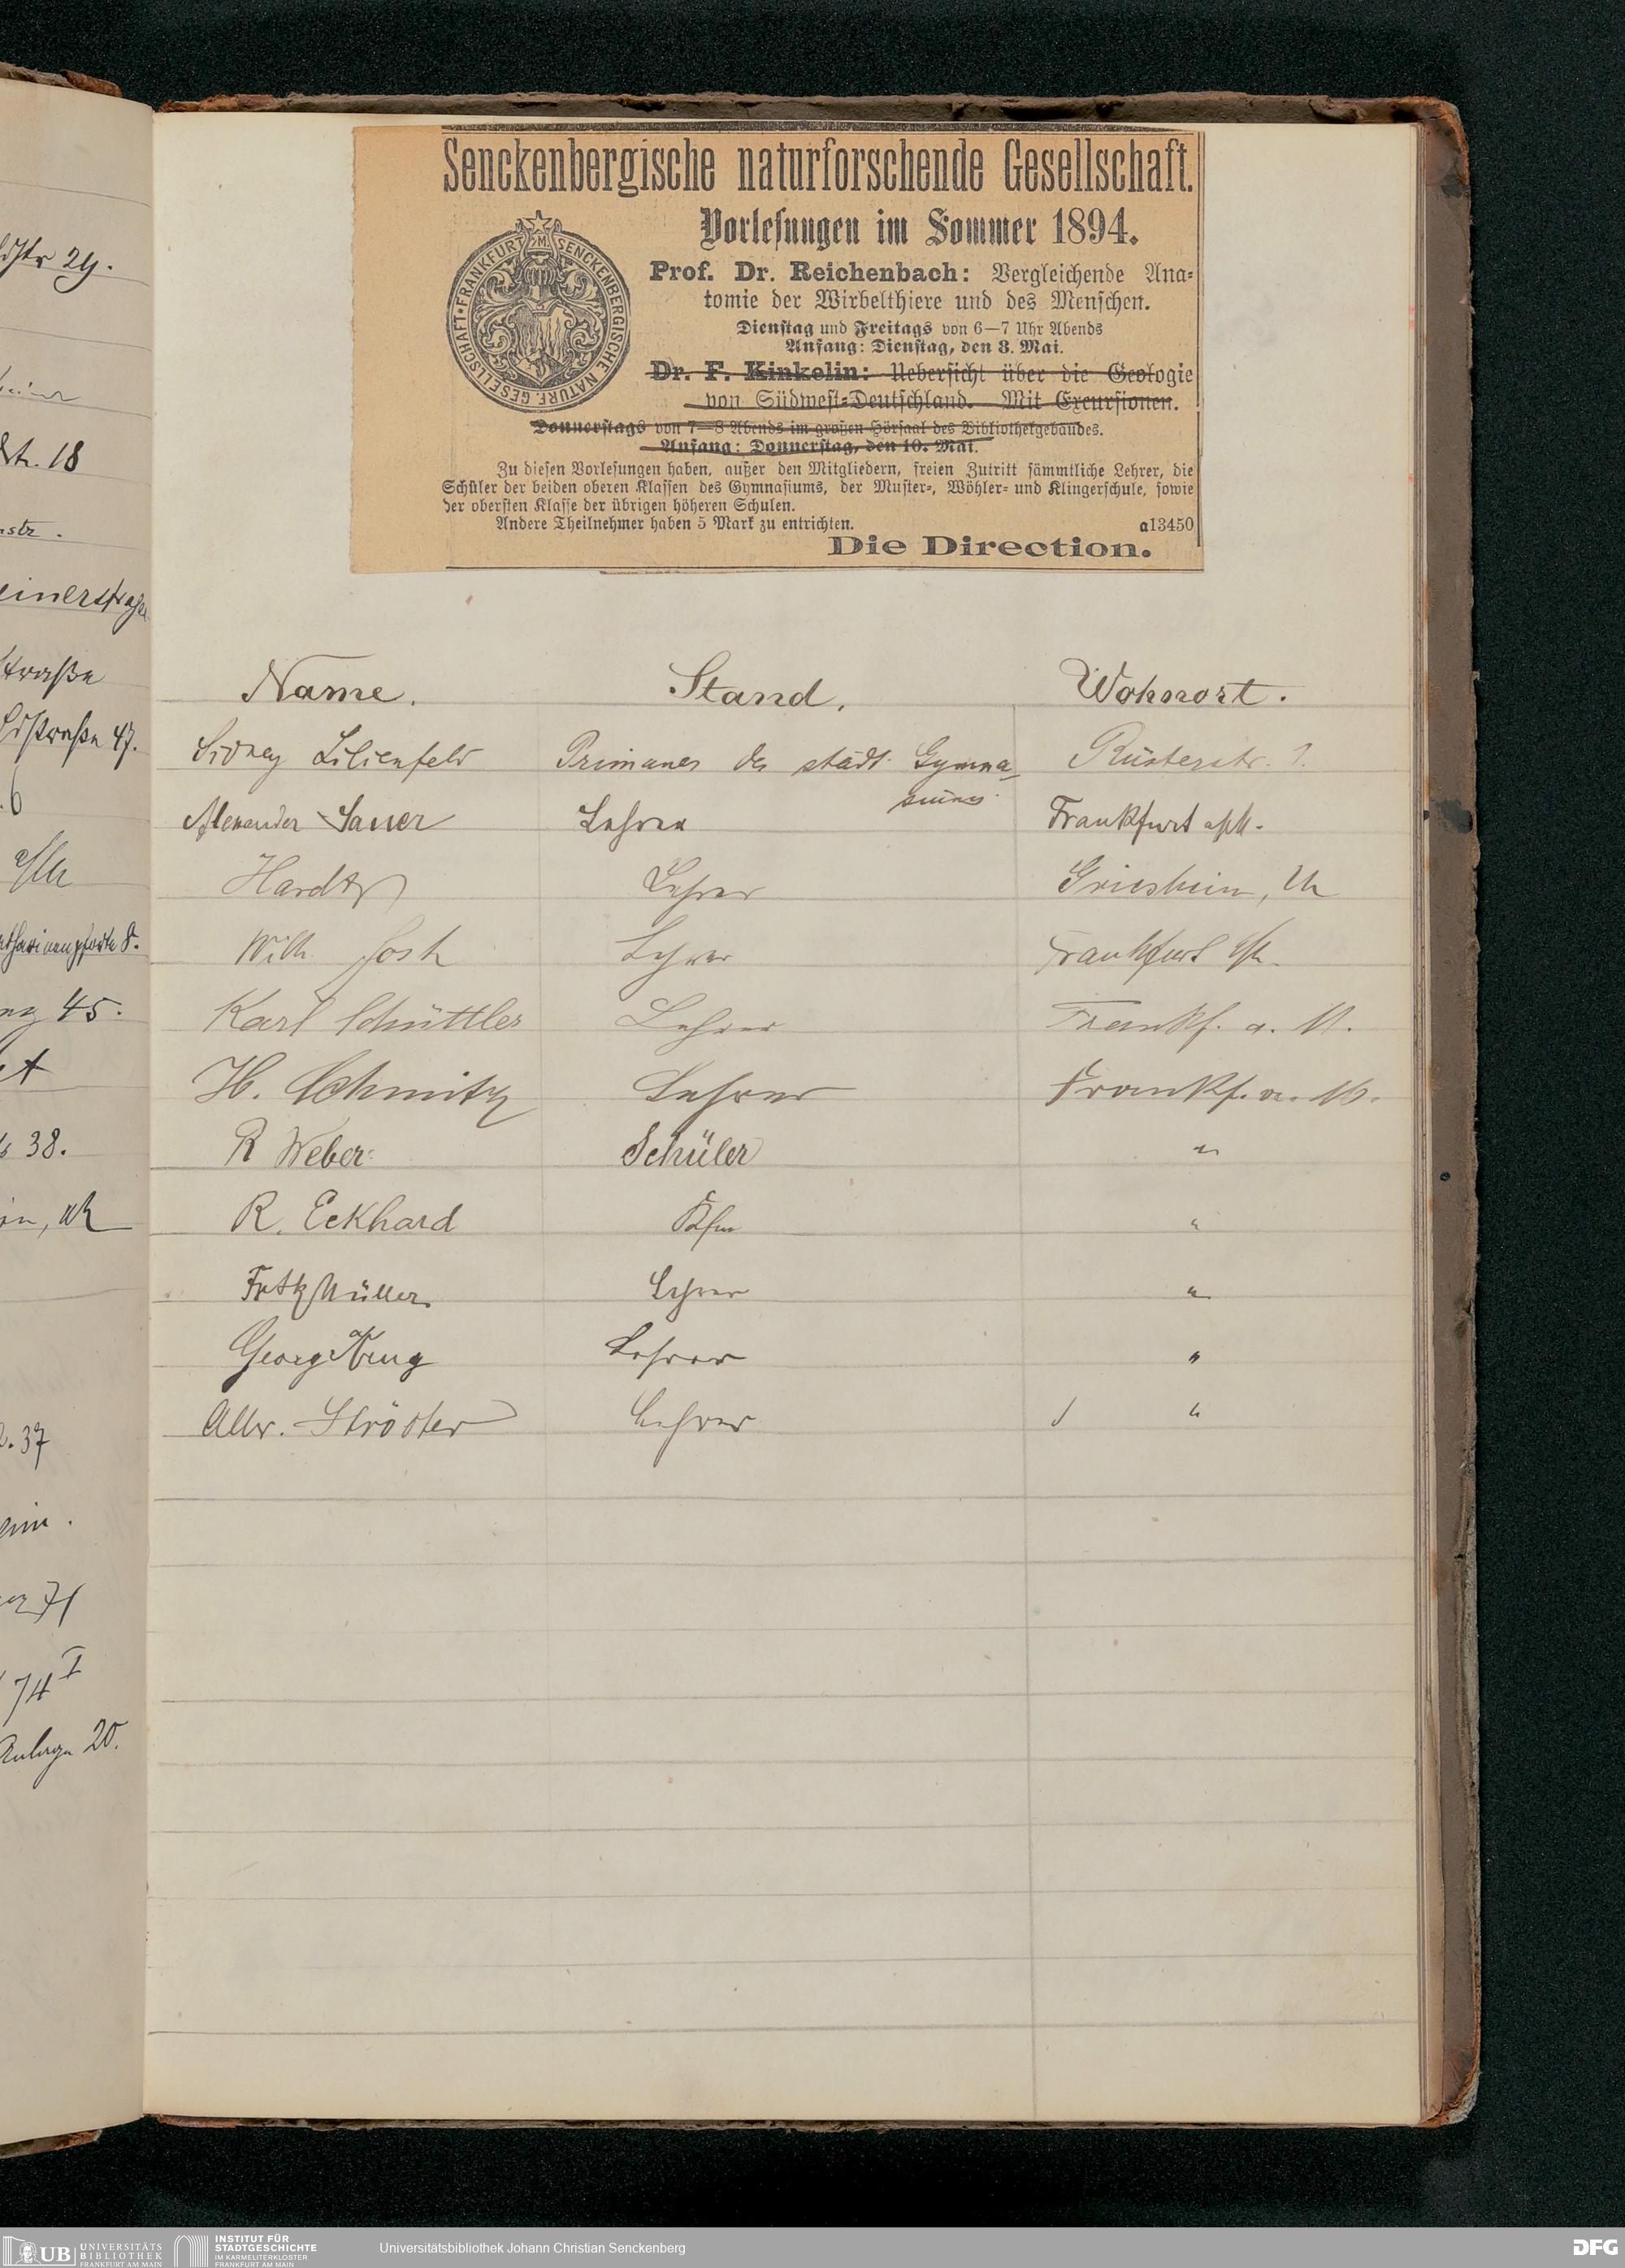 Senckenbergische naturforschende Gesellschaft.
Vorlesungen im Sommer 1894.
FRANKFURT a/M SENCKENBERGISCHE NATURF. GESELLSCHAFT
Prof. Dr. Reichenbach: Vergleichende Ana-
tomie der Wirbelthiere und des Menschen.
Dienstag und Freitags von 6—7 Uhr Abends
Anfang: Dienstag, den 8. Mai.
Dr. F. Kinkelin: Uebersicht über die Geologie
von Südwest-Deutschland. Mit Excursionen.
Donnerstags von 7—8 Abends im großen Hörsaal des Bibliothekgebäudes.
Anfang: Donnerstag, den 10. Mai.
Zu diesen Vorlesungen haben, außer den Mitgliedern, freien Zutritt sämmtliche Lehrer, die
Schüler der beiden oberen Klassen des Gymnasiums, der Muster-, Wöhler- und Klingerschule, sowie
der obersten Klasse der übrigen höheren Schulen.
Andere Theilnehmer haben 5 Mark zu entrichten. a13450
Die Direction.
Name. Stand. Wohnort.
Sidney Lilienfeld Primaner des städt. Gymna-
siums. Rüsterstr. 1.
Alexander Sauer Lehrer Frankfurt a/M.
Hardt Lehrer Griesheim, M
Wilh. Lehrer Frankfurt a/M.
Karl Schüttler Lehrer Frankf. a. M.
H. Schmitz Lehrer Frankf. a. M.
R Weber Schüler "
R. Eckhard Kfm "
Fritz Müller Lehrer "
Georg Krug Lehrer "
Ströster Lehrer "
29.
18
straße
47.
6
a/M
8.
45.
38.
37
71
74 I
Anlage 20.
UB UNIVERSITÄTS
BIBLIOTHEK
FRANKFURT AM MAIN
INSTITUT FÜR
STADTGESCHICHTE
IM KARMELITERKLOSTER
FRANKFURT AM MAIN
Universitätsbibliothek Johann Christian Senckenberg
DFG